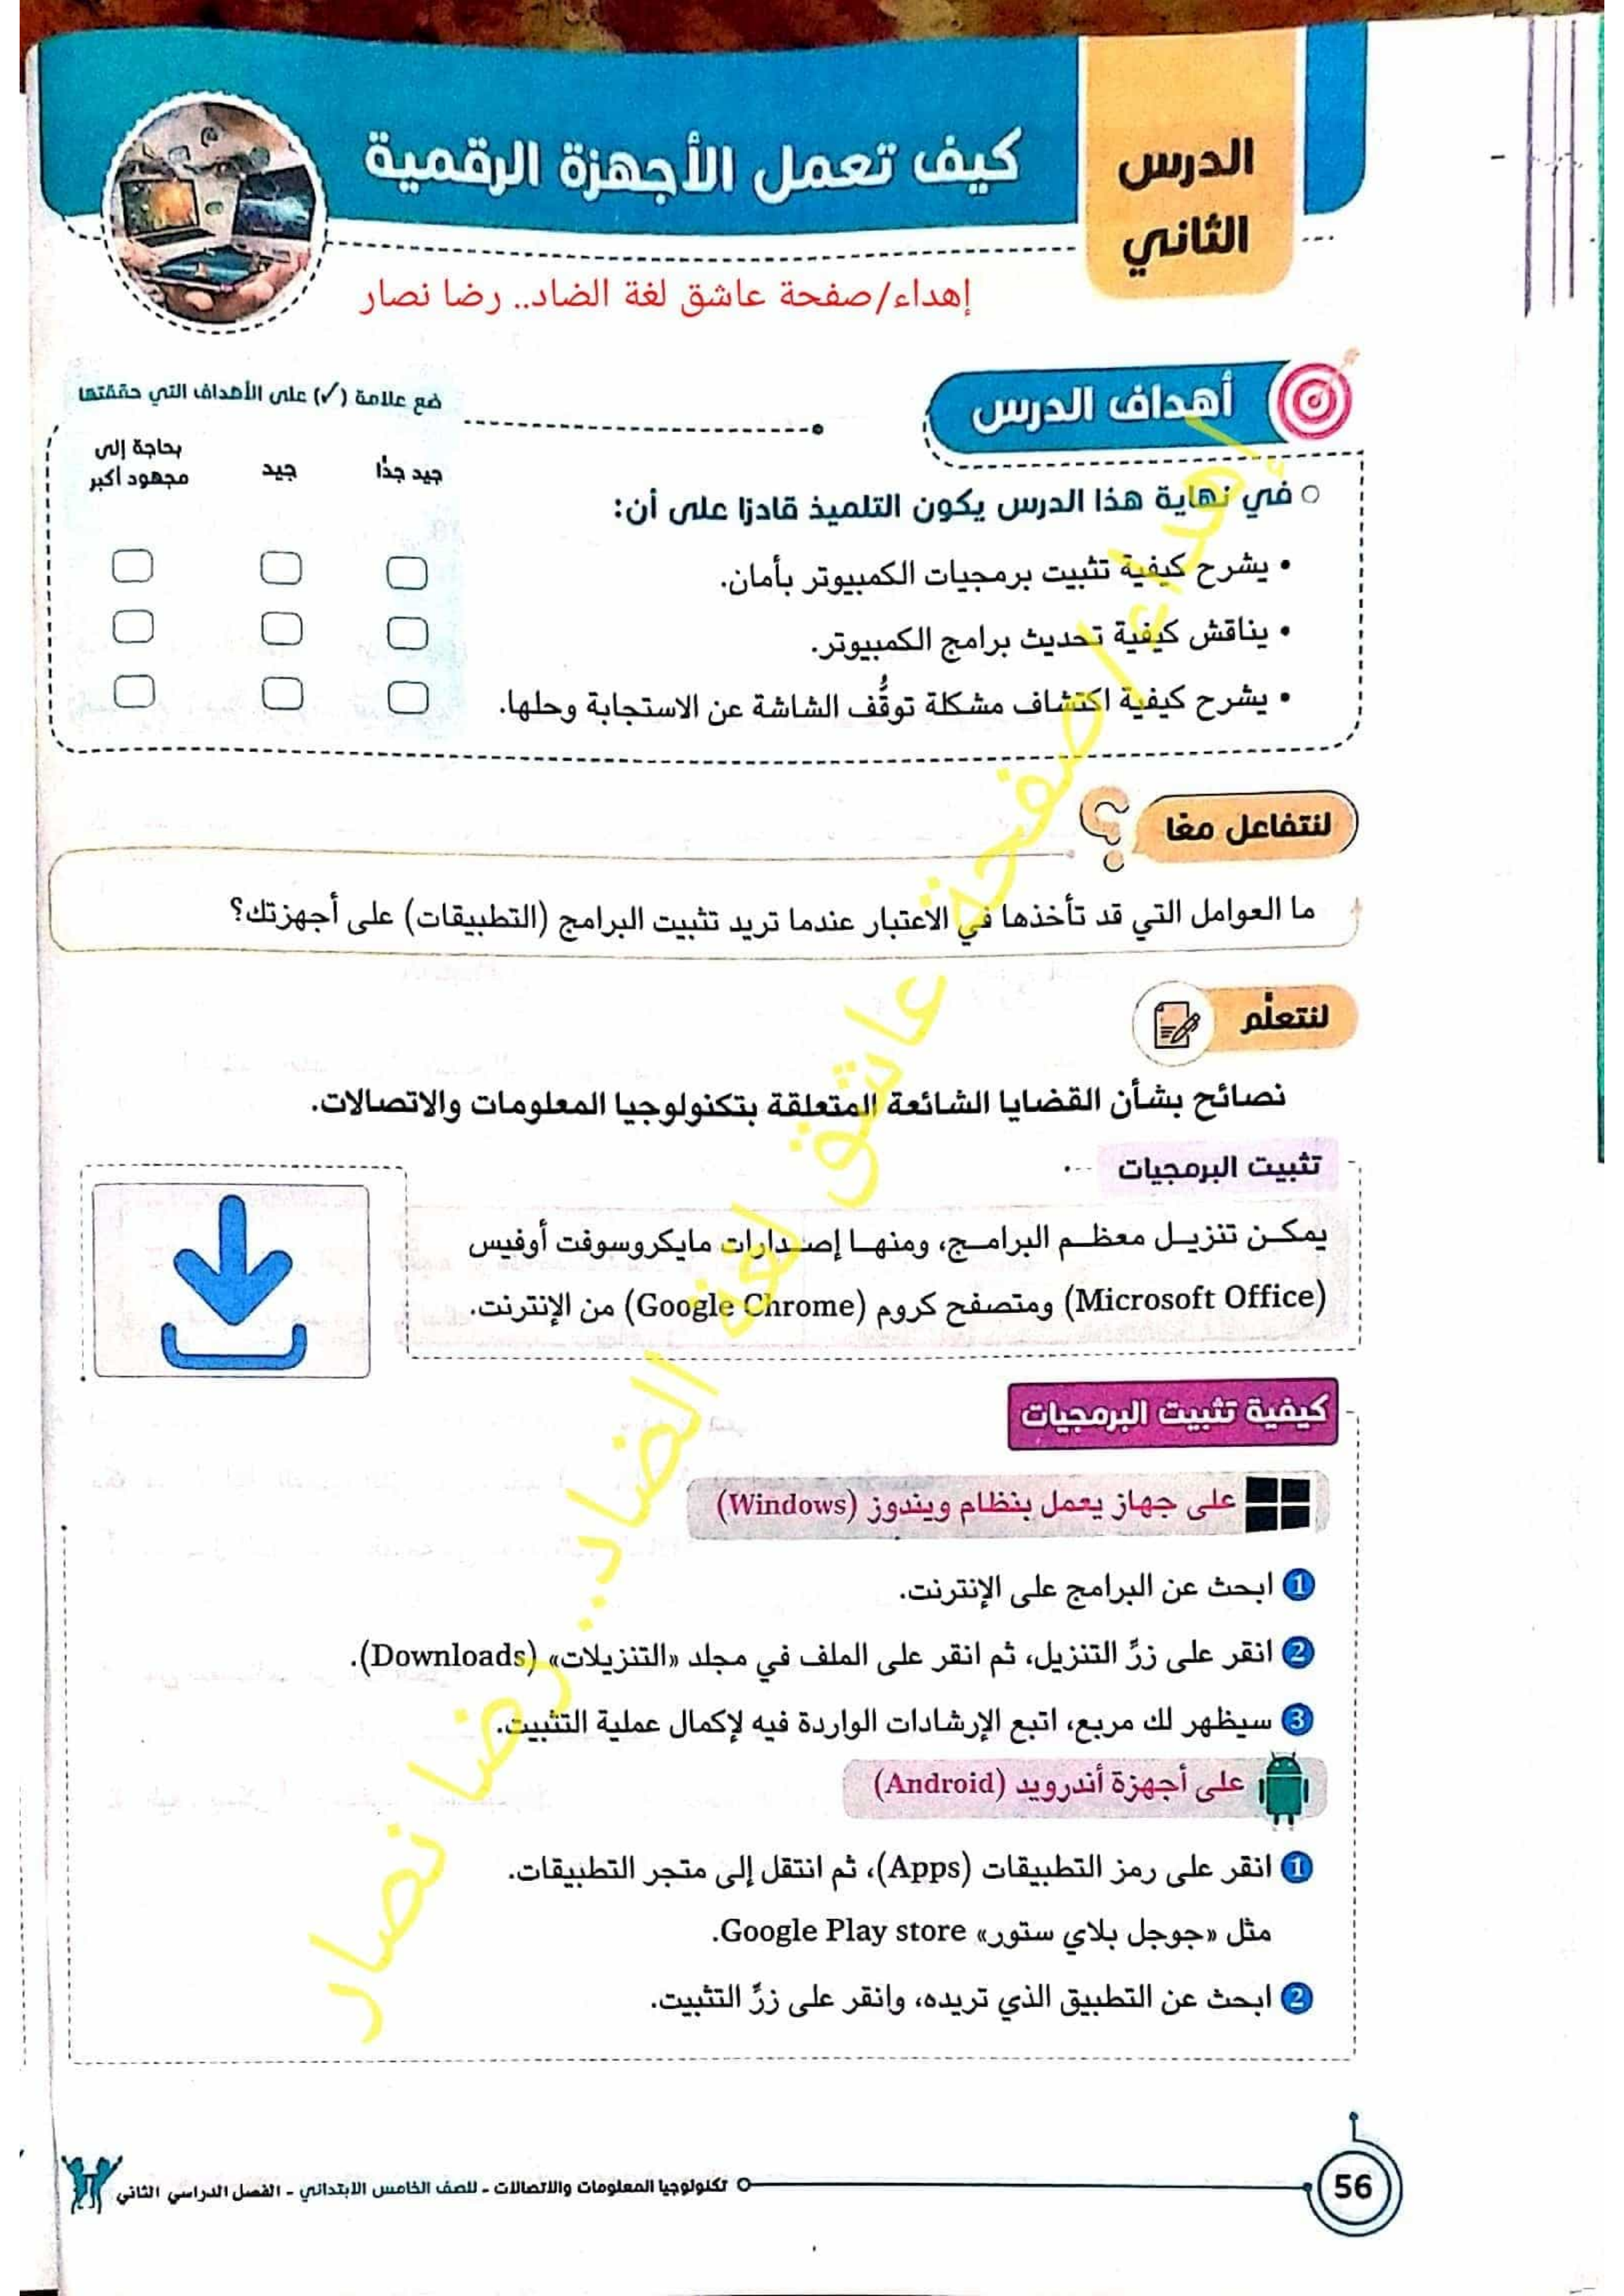 الدرس
الثاني
كيف تعمل الأجهزة الرقمية
إهداء/صفحة عاشق لغة الضاد.. رضا نصار
أهداف الدرس
ضع علامة (✓) على الأهداف التي حققتها
جيد جدًا
جيد
بحاجة إلى
مجهود أكبر
في نهاية هذا الدرس يكون التلميذ قادرًا على أن:
• يشرح كيفية تثبيت برمجيات الكمبيوتر بأمان.
• يناقش كيفية تحديث برامج الكمبيوتر.
• يشرح كيفية اكتشاف مشكلة توقُّف الشاشة عن الاستجابة وحلها.
لنتفاعل معًا
ما العوامل التي قد تأخذها في الاعتبار عندما تريد تثبيت البرامج (التطبيقات) على أجهزتك؟
لنتعلَّم
نصائح بشأن القضايا الشائعة المتعلقة بتكنولوجيا المعلومات والاتصالات.
تثبيت البرمجيات
يمكـن تنزيـل معظـم البرامـج، ومنهـا إصـدارات مايكروسوفت أوفيس
(Microsoft Office) ومتصفح كروم (Google Chrome) من الإنترنت.
كيفية تثبيت البرمجيات
على جهاز يعمل بنظام ويندوز (Windows)
1 ابحث عن البرامج على الإنترنت.
2 انقر على زرِّ التنزيل، ثم انقر على الملف في مجلد «التنزيلات» (Downloads).
3 سيظهر لك مربع، اتبع الإرشادات الواردة فيه لإكمال عملية التثبيت.
على أجهزة أندرويد (Android)
1 انقر على رمز التطبيقات (Apps)، ثم انتقل إلى متجر التطبيقات.
مثل «جوجل بلاي ستور» Google Play store.
2 ابحث عن التطبيق الذي تريده، وانقر على زرِّ التثبيت.
إهداء/صفحة عاشق لغة الضاد.. رضا نصار
56
تكنولوجيا المعلومات والاتصالات - للصف الخامس الابتدائي - الفصل الدراسي الثاني